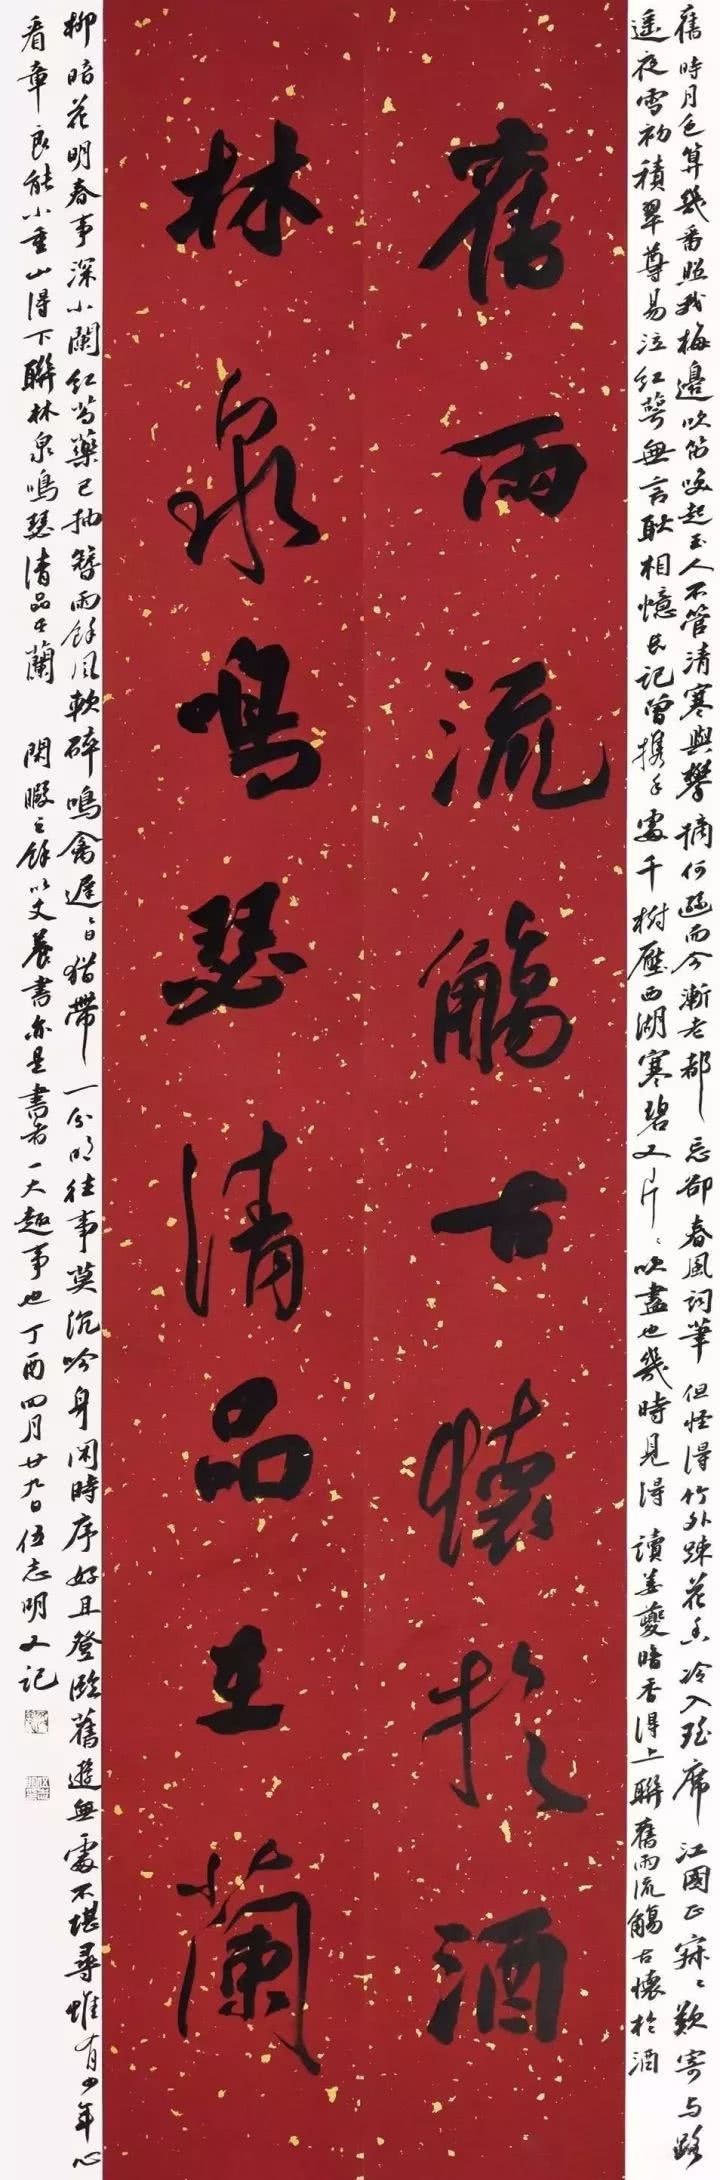 舊雨流觴古懷於酒
林泉鳴瑟清品在蘭
舊時月色算幾番照我梅邊吹笛喚起玉人不管清寒與攀摘何遜而今漸老都忘卻春風詞筆但怪得竹外疎花香冷入瑤席江國正寂〻歎寄与路
遥夜雪初積翠尊易泣紅萼無言耿相憶長記曾携手處千樹壓西湖寒碧又片〻吹盡也幾時見得 讀姜夔暗香得上聯舊雨流觴古懷於酒
柳暗花明春事深小闌紅芍藥已抽簪雨餘風軟碎鳴禽遲〻日猶帶一分陰往事莫沉吟身閑時序好且登臨舊遊無處不堪尋惟有少年心
看章良能小重山得下聯林泉鳴瑟清品在蘭 閑暇之餘以文養書亦是書者一大趣事也丁酉四月廿九日伍志明又記